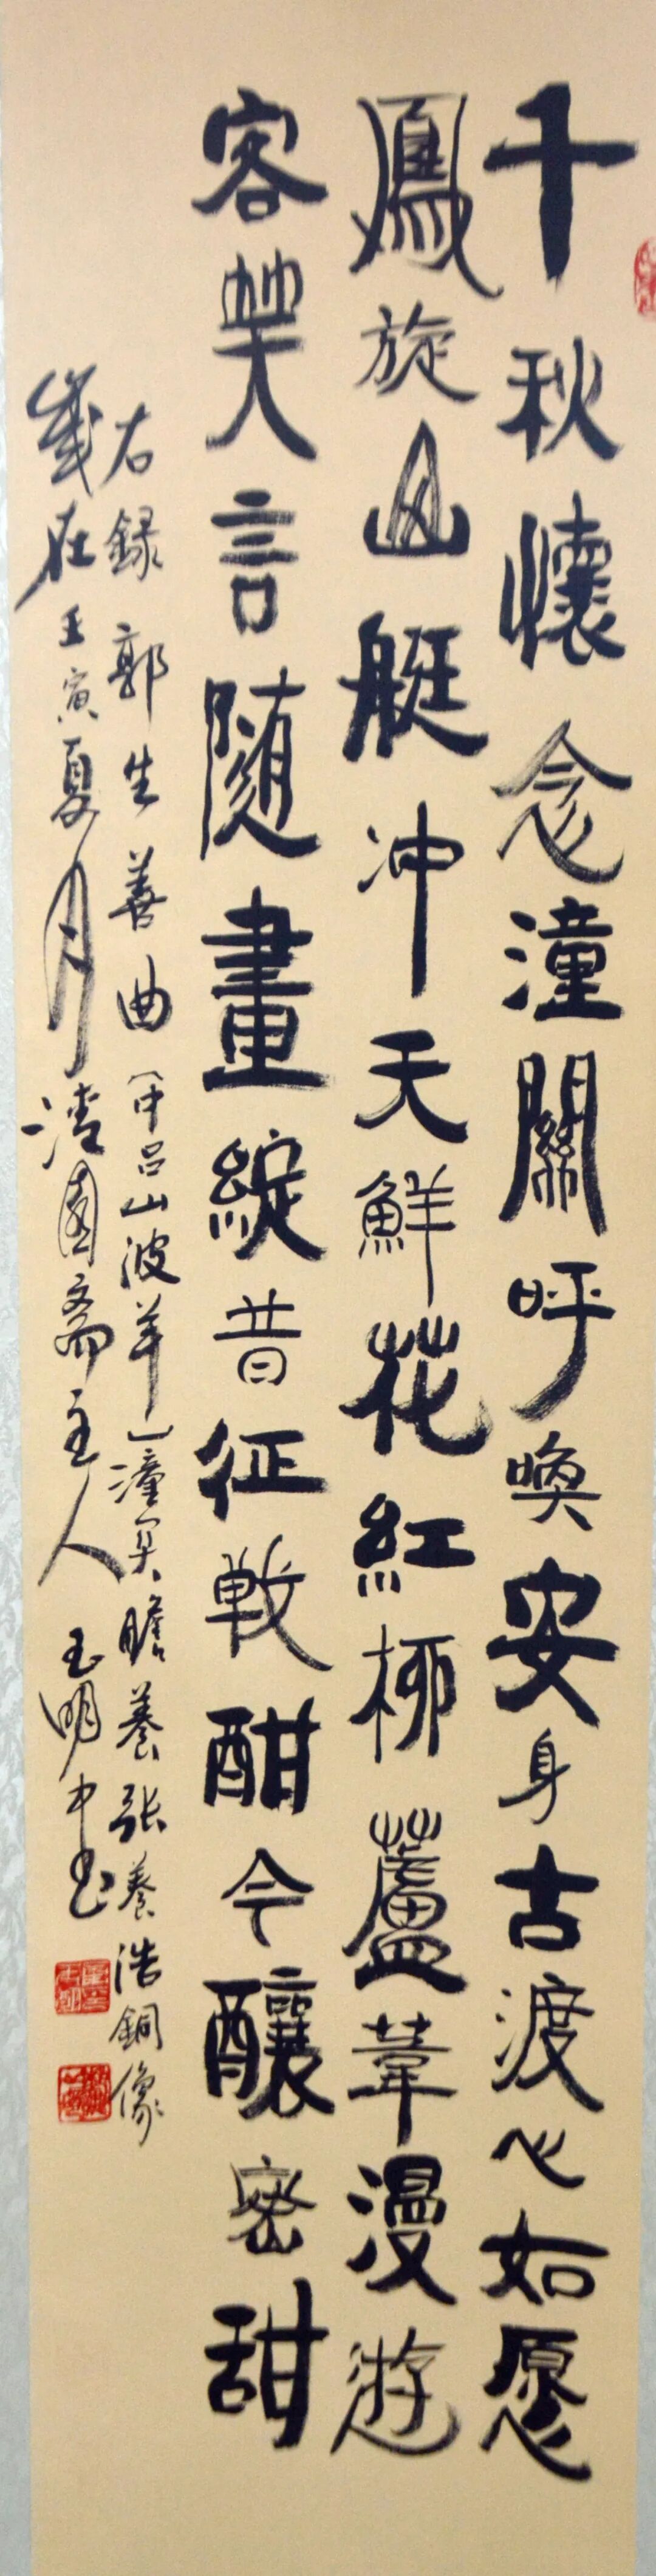 千秋懷念潼關呼喚安身古渡心如愿
鳳旋山艇冲天鮮花紅柳蘆葦漫遊
客笑言隨畫綻昔征戰酣今釀密甜
右録郭生善曲（中吕山波羊）潼关瞻養张養浩銅像
歲在壬寅夏月清園斋主人玉明中书